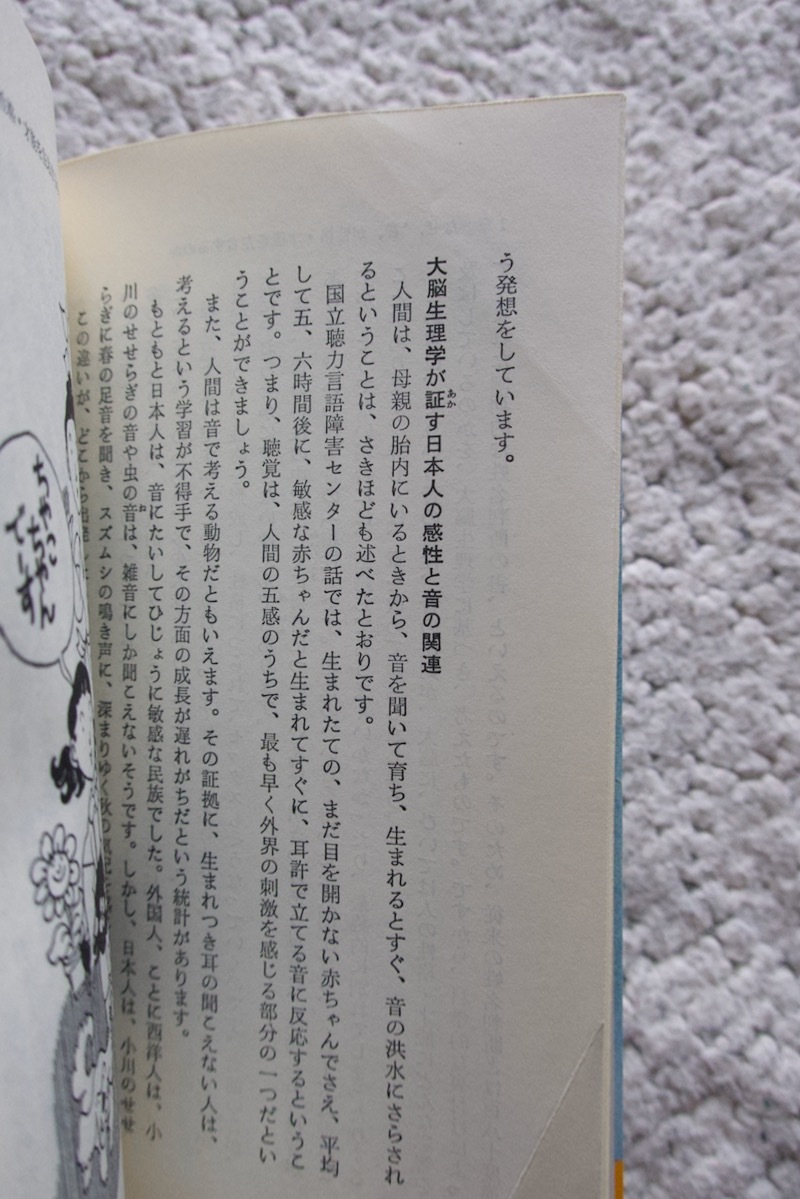 う発想をしています。
大脳生理学が証す日本人の感性と音の関連
あか
人間は、母親の胎内にいるときから、音を聞いて育ち、生まれるとすぐ、音の洪水にさらされ
るということは、さきほども述べたとおりです。
国立聴力言語障害センターの話では、生まれたての、まだ目を開かない赤ちゃんでさえ、平均
して五、六時間後に、敏感な赤ちゃんだと生まれてすぐに、耳許で立てる音に反応するというこ
とです。つまり、聴覚は、人間の五感のうちで、最も早く外界の刺激を感じる部分の一つだとい
うことができましょう。
また、人間は音で考える動物だともいえます。その証拠に、生まれつき耳の聞こえない人は、
考えるという学習が不得手で、その方面の成長が遅れがちだという統計があります。
もともと日本人は、音にたいしてひじょうに敏感な民族でした。外国人、ことに西洋人は、小
川のせせらぎの音や虫の音は、雑音にしか聞こえないそうです。しかし、日本人は、小川のせせ
ね
らぎに春の足音を聞き、スズムシの鳴き声に、深まりゆく秋の
この違いが、どこから出発し
ちゃっこ
ちゃん
でーす